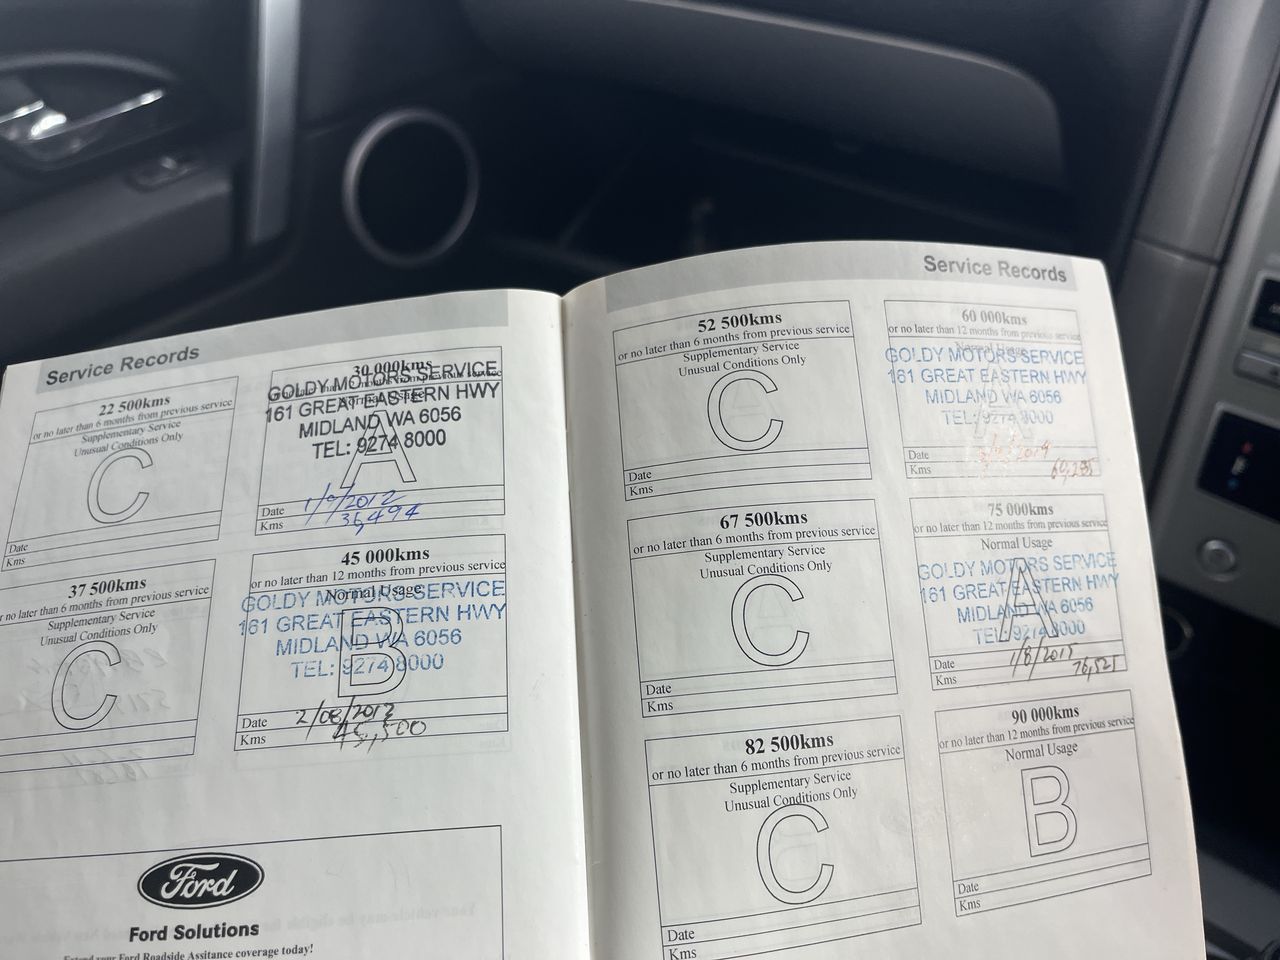 Service Records
22 500kms
or no later than 6 months from previous service
Supplementary Service
Unusual Conditions Only
C
Date
Kms
30 000kms
GOLDY MOTORS SERVICE
161 GREAT EASTERN HWY
MIDLAND WA 6056
TEL: 9274 8000
A
Date 1/9/2012
Kms
37 500kms
or no later than 6 months from previous service
Supplementary Service
Unusual Conditions Only
C
45 000kms
or no later than 12 months from previous service
Normal Usage
GOLDY MOTORS SERVICE
161 GREAT EASTERN HWY
MIDLAND WA 6056
TEL: 9274 8000
B
Date
Kms 45,500
Ford
Ford Solutions
Extend your Ford Roadside Assitance coverage today!
Service Records
52 500kms
or no later than 6 months from previous service
Supplementary Service
Unusual Conditions Only
C
Date
Kms
60 000kms
or no later than 12 months from previous service
GOLDY MOTORS SERVICE
161 GREAT EASTERN HWY
MIDLAND WA 6056
TEL: 9274 8000
A
Date
Kms
67 500kms
or no later than 6 months from previous service
Supplementary Service
Unusual Conditions Only
C
Date
Kms
75 000kms
or no later than 12 months from previous service
Normal Usage
GOLDY MOTORS SERVICE
161 GREAT EASTERN HWY
MIDLAND WA 6056
TEL: 9274 8000
A
Date 1/8/2015
Kms 76,525
82 500kms
or no later than 6 months from previous service
Supplementary Service
Unusual Conditions Only
C
Date
Kms
90 000kms
or no later than 12 months from previous service
Normal Usage
B
Date
Kms